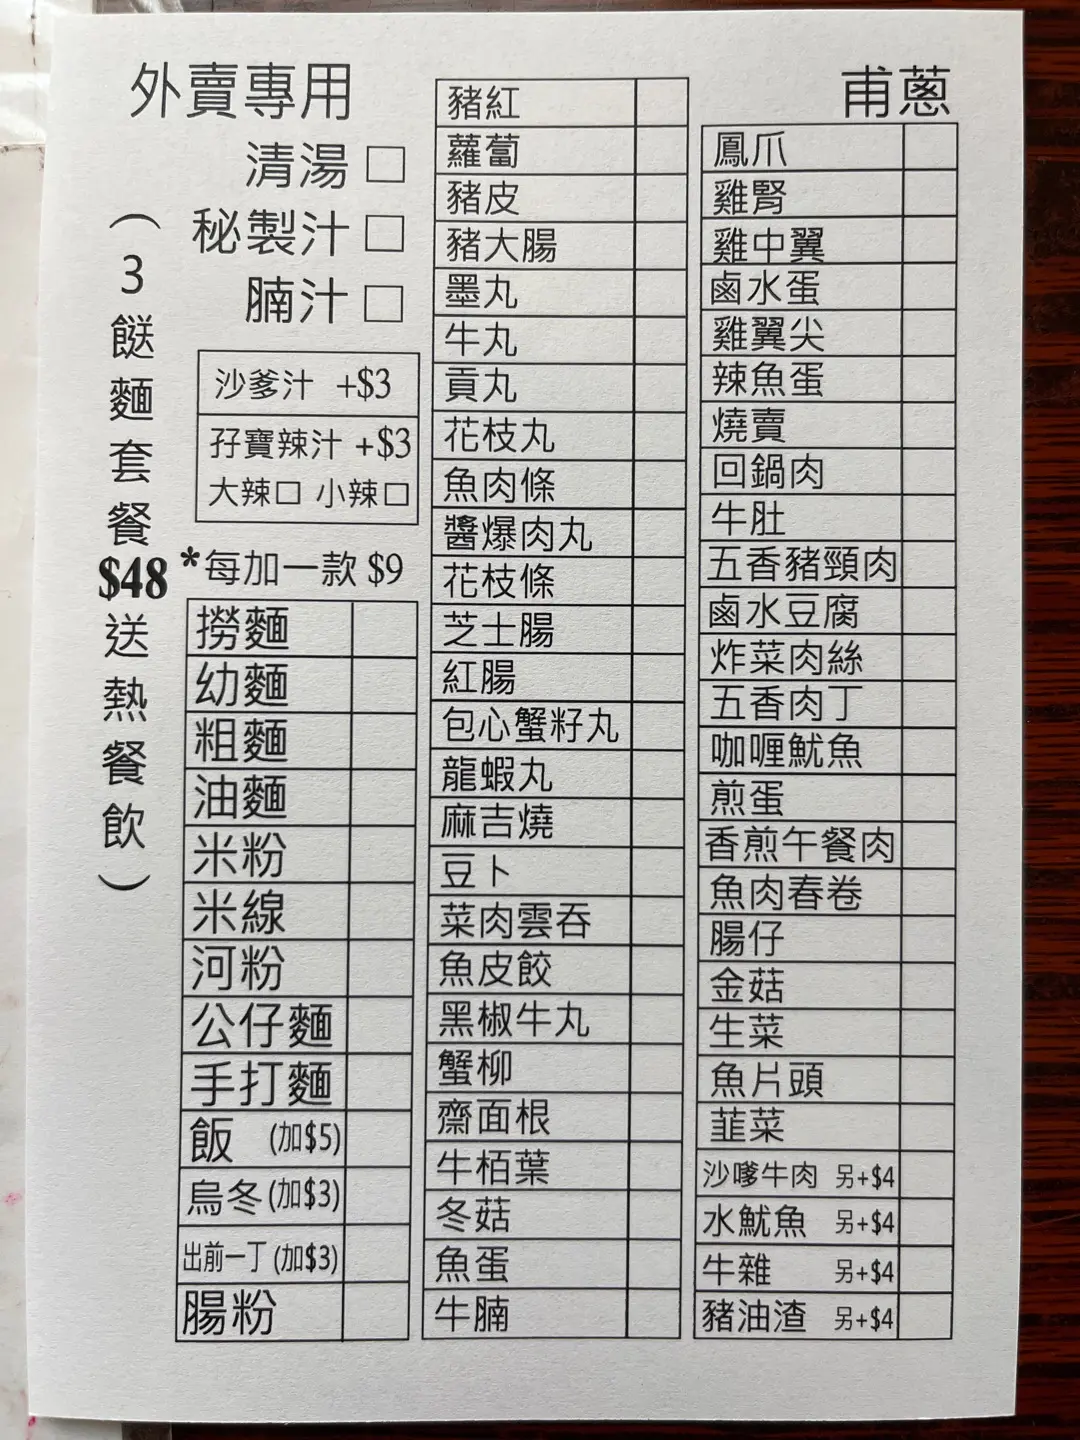 外賣專用
清湯 □
秘製汁 □
腩汁 □
沙爹汁 +$3
孖寶辣汁 +$3
大辣口 小辣口
*每加一款 $9
(3餸麵套餐$48送熱餐飲)
撈麵
幼麵
粗麵
油麵
米粉
米線
河粉
公仔麵
手打麵
飯 (加$5)
烏冬(加$3)
出前一丁(加$3)
腸粉
豬紅
蘿蔔
豬皮
豬大腸
墨丸
牛丸
貢丸
花枝丸
魚肉條
醬爆肉丸
花枝條
芝士腸
紅腸
包心蟹籽丸
龍蝦丸
麻吉燒
豆卜
菜肉雲吞
魚皮餃
黑椒牛丸
蟹柳
齋面根
牛栢葉
冬菇
魚蛋
牛腩
甫蔥
鳳爪
雞腎
雞中翼
鹵水蛋
雞翼尖
辣魚蛋
燒賣
回鍋肉
牛肚
五香豬頸肉
鹵水豆腐
炸菜肉絲
五香肉丁
咖喱魷魚
煎蛋
香煎午餐肉
魚肉春卷
腸仔
金菇
生菜
魚片頭
韮菜
沙嗲牛肉 另+$4
水魷魚 另+$4
牛雜 另+$4
豬油渣 另+$4